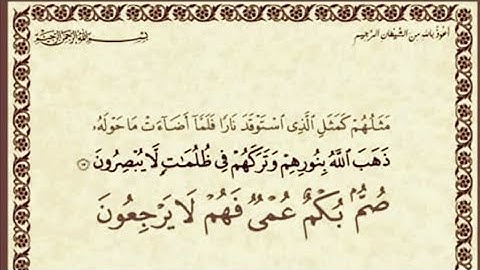 أعوذ بالله من الشيطان الرجيم
بسم الله الرحمن الرحيم
مَثَلُهُمْ كَمَثَلِ الَّذِى اسْتَوْقَدَ نَارًا فَلَمَّآ أَضَآءَتْ مَا حَوْلَهُۥ
ذَهَبَ اللَّهُ بِنُورِهِمْ وَتَرَكَهُمْ فِى ظُلُمَٰتٍ لَّا يُبْصِرُونَ ١٧
صُمٌّ بُكْمٌ عُمْىٌ فَهُمْ لَا يَرْجِعُونَ